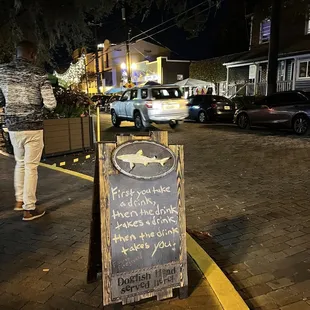 First you take
a drink,
then the drink
takes a drink,
then the drink
takes you.
Dogfish Head
served here